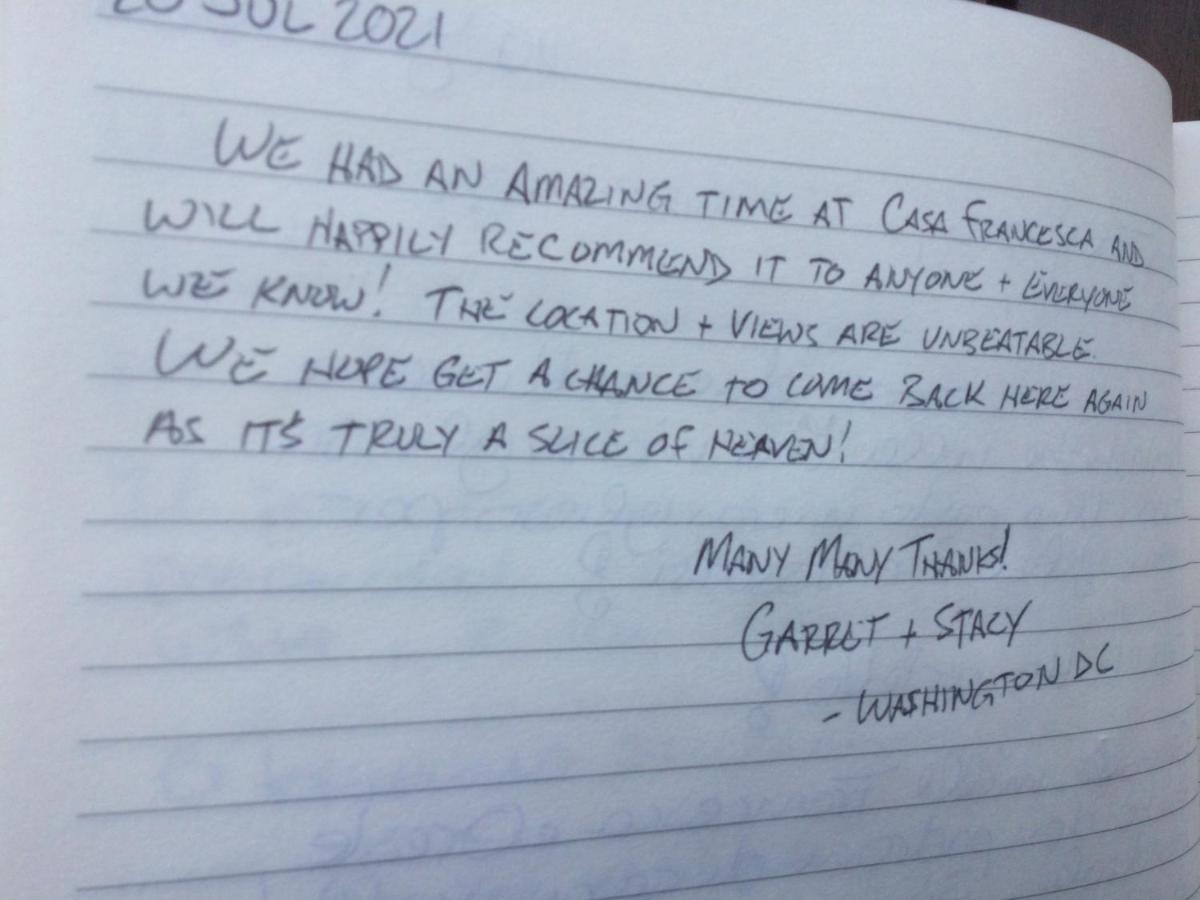 JUL 2021
WE HAD AN AMAZING TIME AT CASA FRANCESCA AND
WILL HAPPILY RECOMMEND IT TO ANYONE + EVERYONE
WE KNOW! THE LOCATION + VIEWS ARE UNBEATABLE.
WE HOPE GET A CHANCE TO COME BACK HERE AGAIN
AS IT'S TRULY A SLICE OF HEAVEN!
MANY MANY THANKS!
GARRET + STACY
- WASHINGTON DC